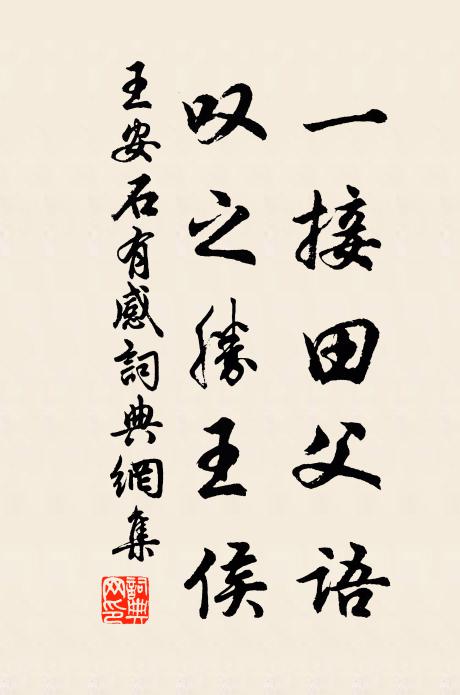 一接田父語
叹之勝王侯
王安石有感詞典網集
詞典网印